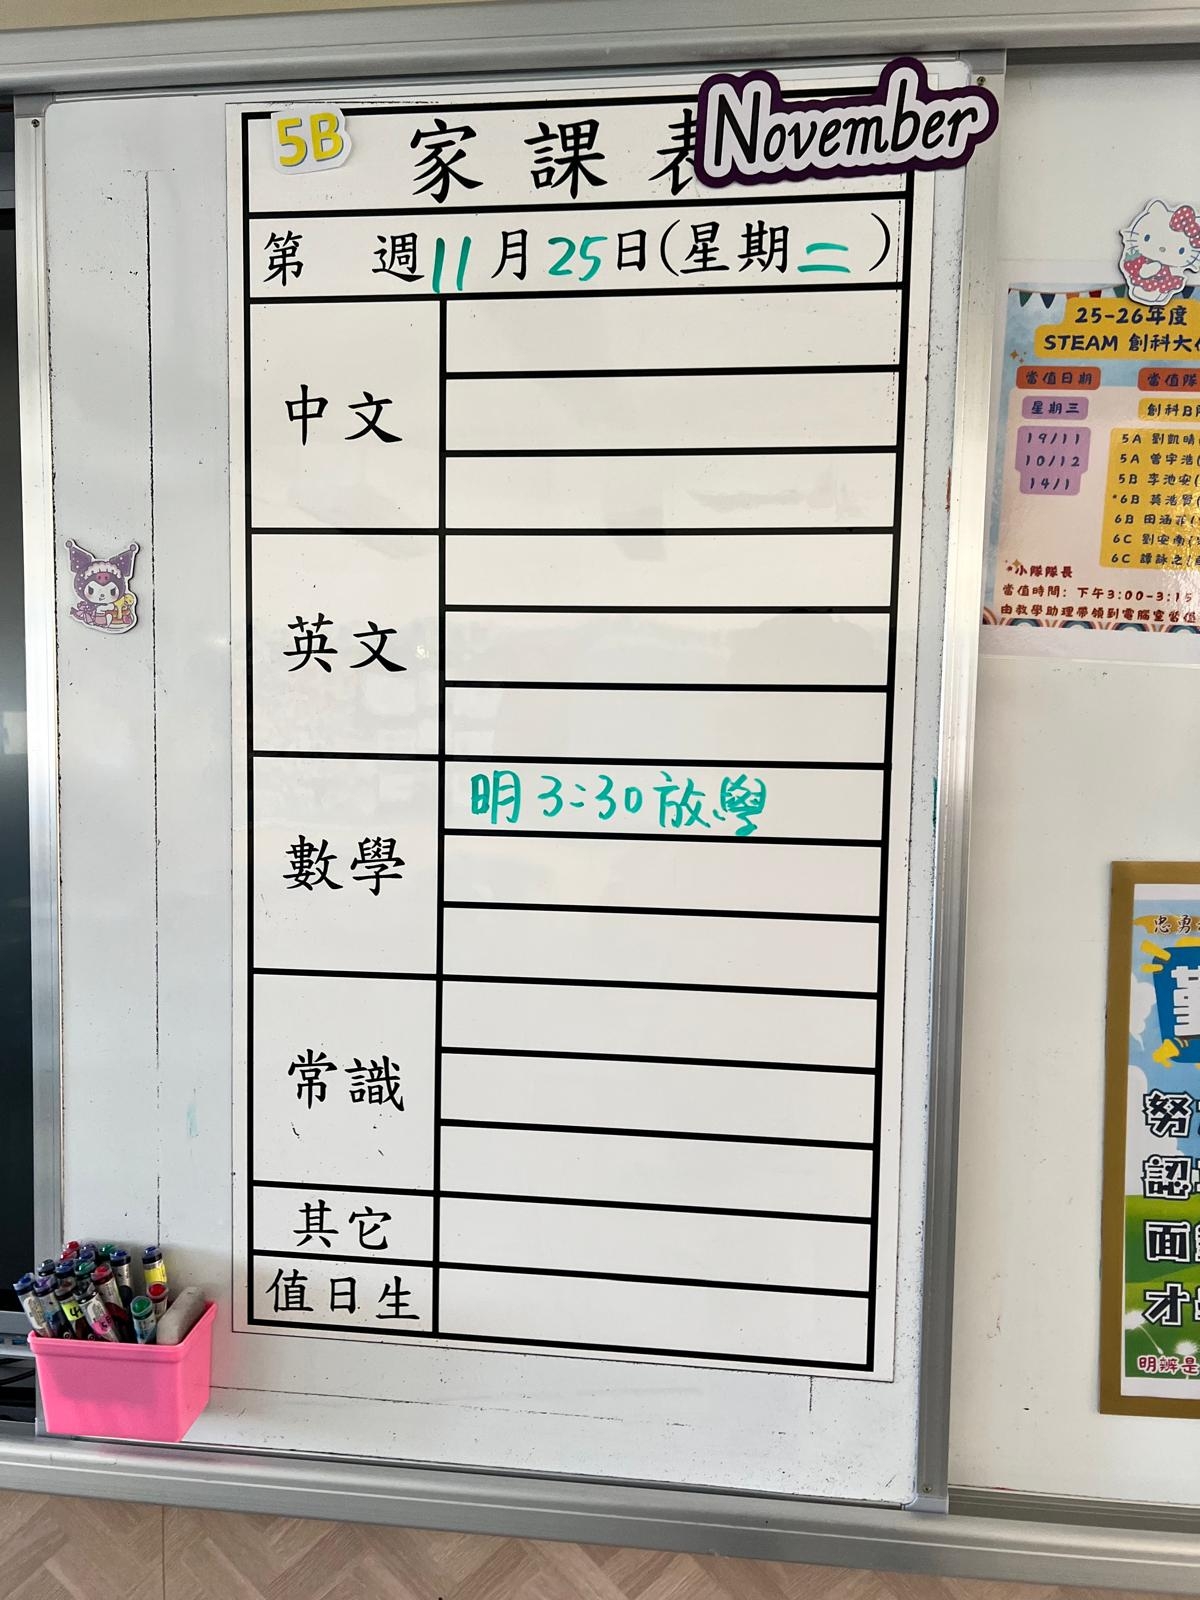 5B
家課表
November
第 週11月25日(星期二)
中文
英文
數學
明3:30放學
常識
其它
值日生
25-26年度
STEAM 創科大
當值日期
當值隊
星期三
創科B
19/11
10/12
14/1
5A 劉凱晴
5A 曾宇浩
5B 李池安
*6B 莫浩賢
6B 田涵菲
6C 劉安南
6C 譚詠之
*小隊隊長
當值時間: 下午3:00-3:15
由教學助理帶領到電腦室當值
忠勇
勤
努
認
面
才
明辨是